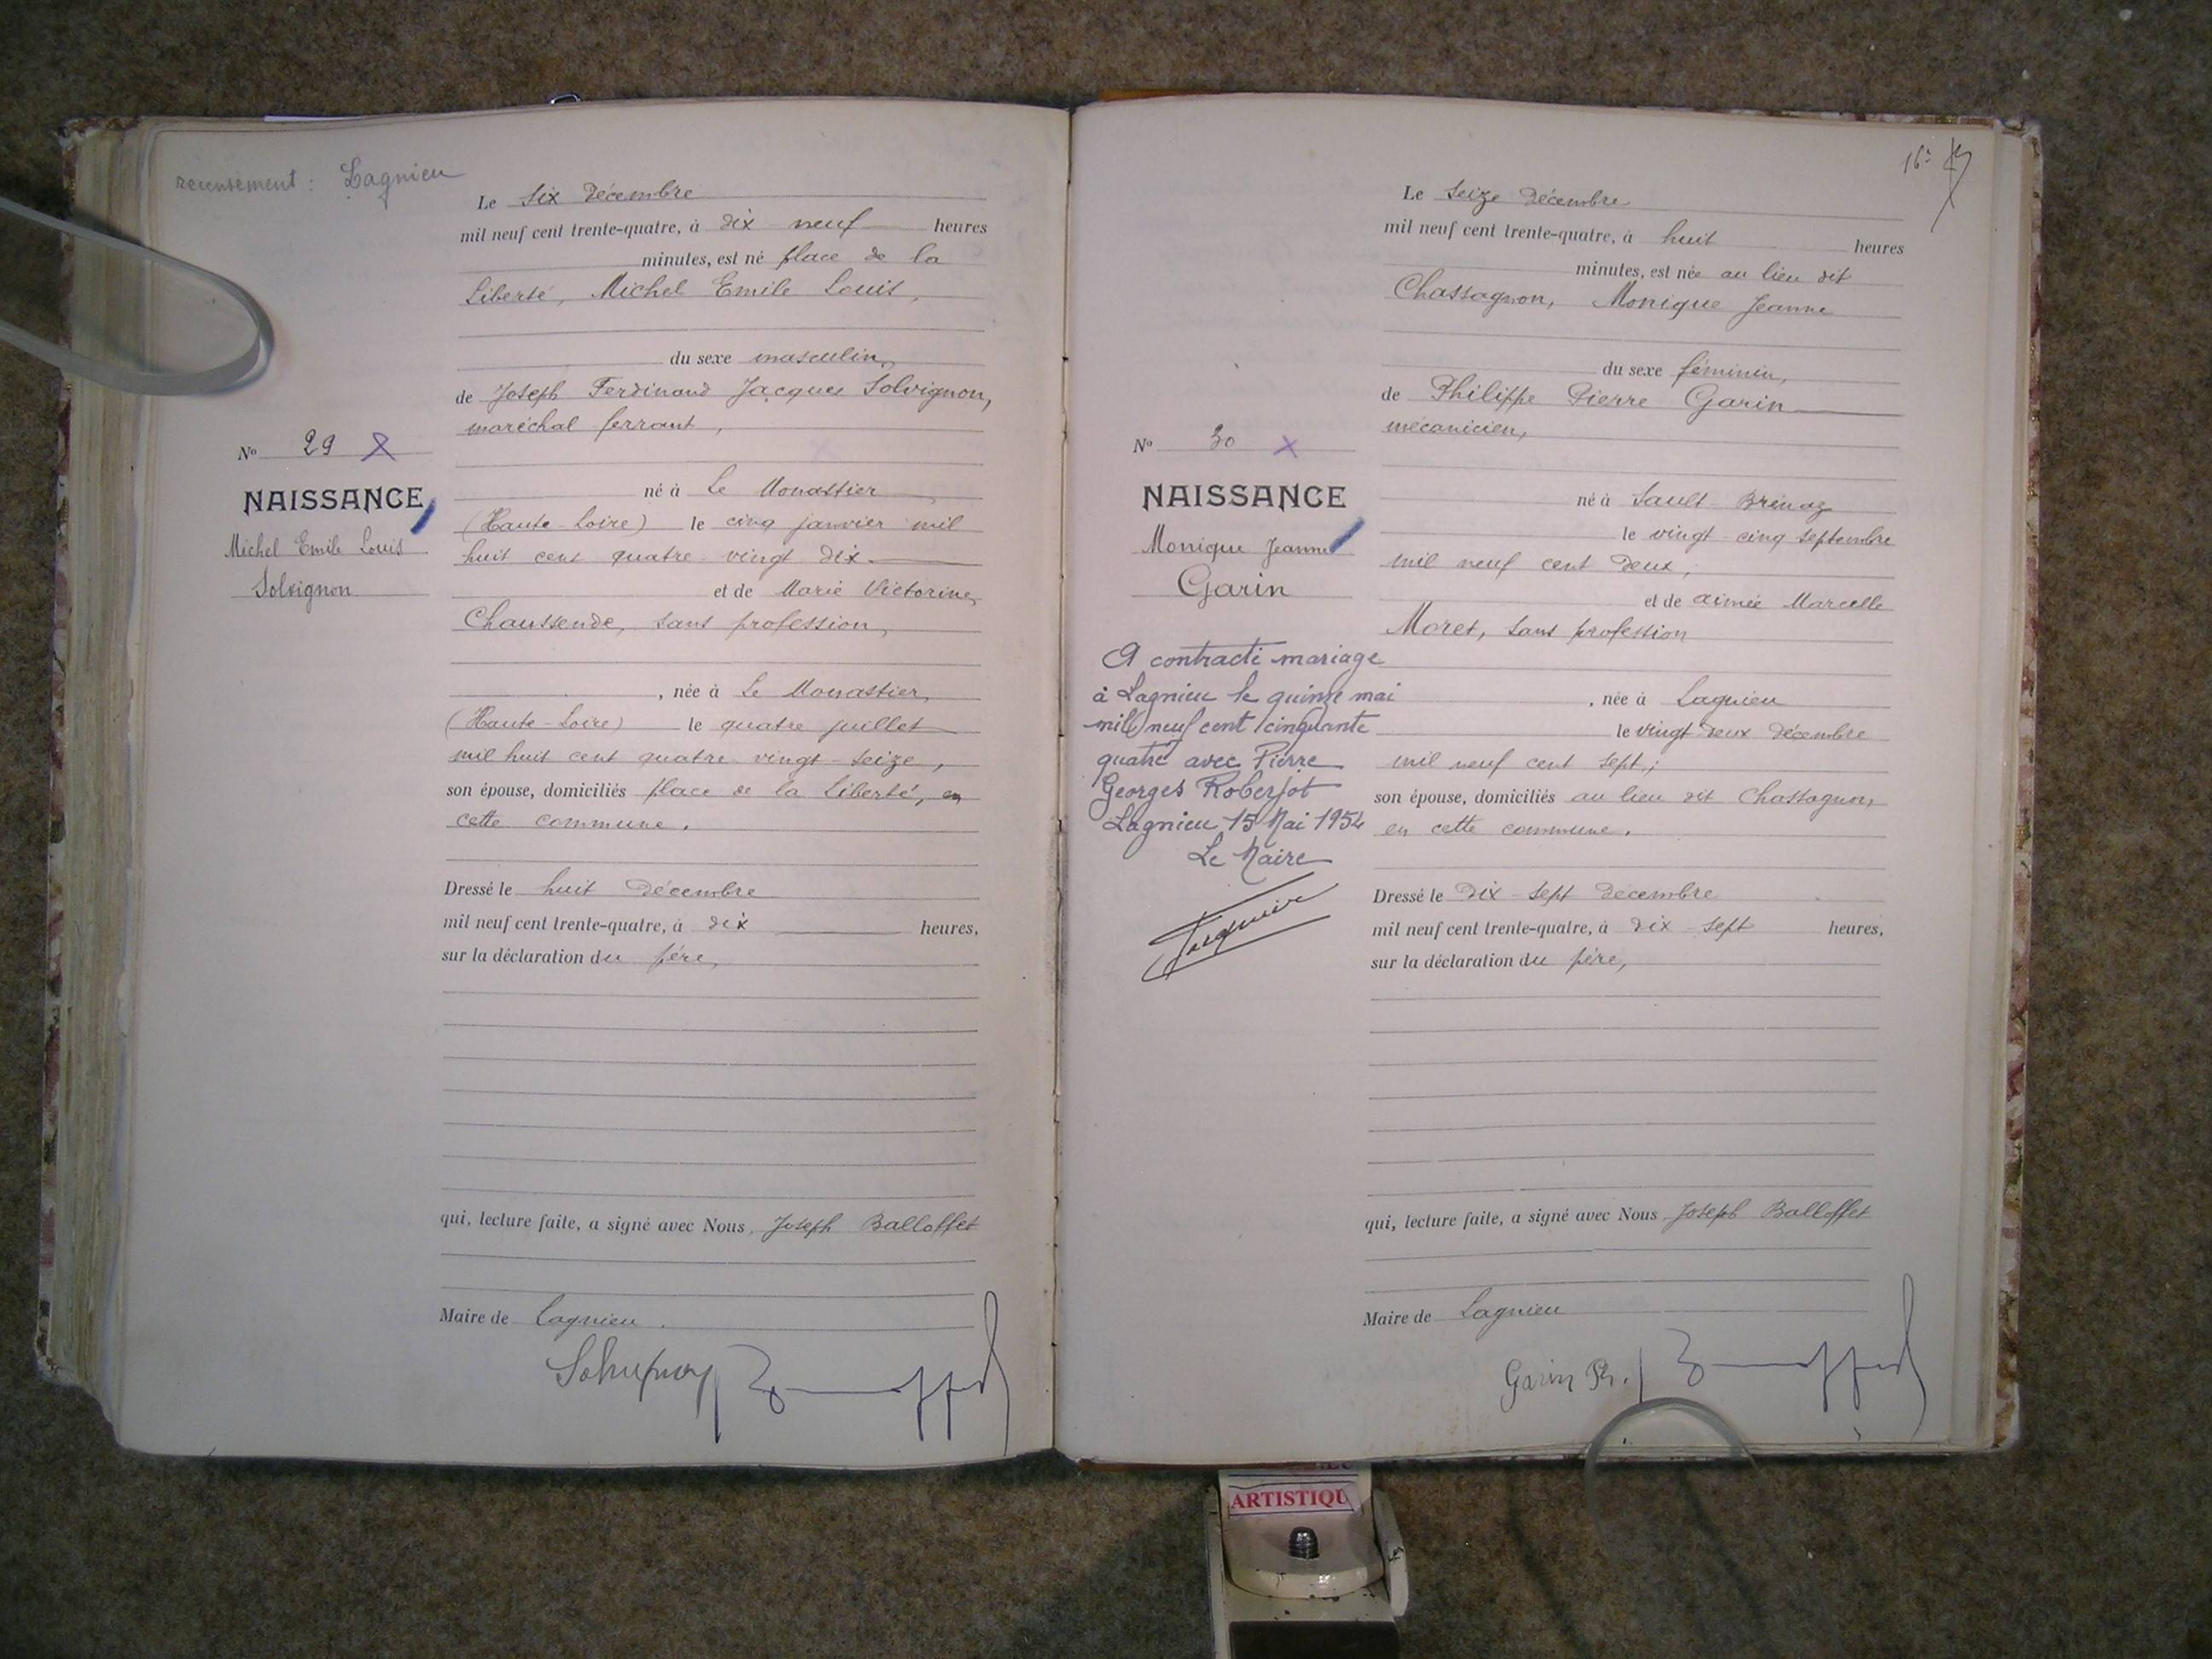 recensement : Lagnieu
Le six Décembre
mil neuf cent trente-quatre, à dix neuf heures
minutes, est né place de la
Liberté, Michel Emile Louis,
du sexe masculin,
de Joseph Ferdinand Jacques Solvignon,
maréchal ferrant,
né à Le Monastier
(Haute-Loire) le cinq janvier mil
huit cent quatre-vingt dix
et de Marie Victorine
Chaussende, sans profession,
, née à Le Monastier,
(Haute-Loire) le quatre juillet
mil huit cent quatre-vingt-seize,
son épouse, domiciliés place de la Liberté, en
cette commune.
Dressé le huit Décembre
mil neuf cent trente-quatre, à dix heures,
sur la déclaration du père,
qui, lecture faite, a signé avec Nous, Joseph Balloffet
Maire de Lagnieu.
No 29
NAISSANCE
Michel Emile Louis
Solvignon
Le Seize Décembre
mil neuf cent trente-quatre, à huit heures
minutes, est née au lieu dit
Chassagnon, Monique Jeanne
du sexe féminin,
de Philippe Pierre Garin
mécanicien,
né à Sault-Brénaz
le vingt-cinq septembre
mil neuf cent deux,
et de aimée Marcelle
Moret, sans profession
, née à Lagnieu
le vingt deux décembre
mil neuf cent sept;
son épouse, domiciliés au lieu dit Chassagnon,
en cette commune.
Dressé le dix-sept décembre
mil neuf cent trente-quatre, à dix-sept heures,
sur la déclaration du père,
qui, lecture faite, a signé avec Nous Joseph Balloffet
Maire de Lagnieu
Garin Ph.
No 30
NAISSANCE
Monique Jeanne
Garin
A contracté mariage
à Lagnieu le quinze mai
mil neuf cent cinquante
quatre avec Pierre
Georges Roberjot
Lagnieu 15 Mai 1954
Le Maire
ARTISTIQU